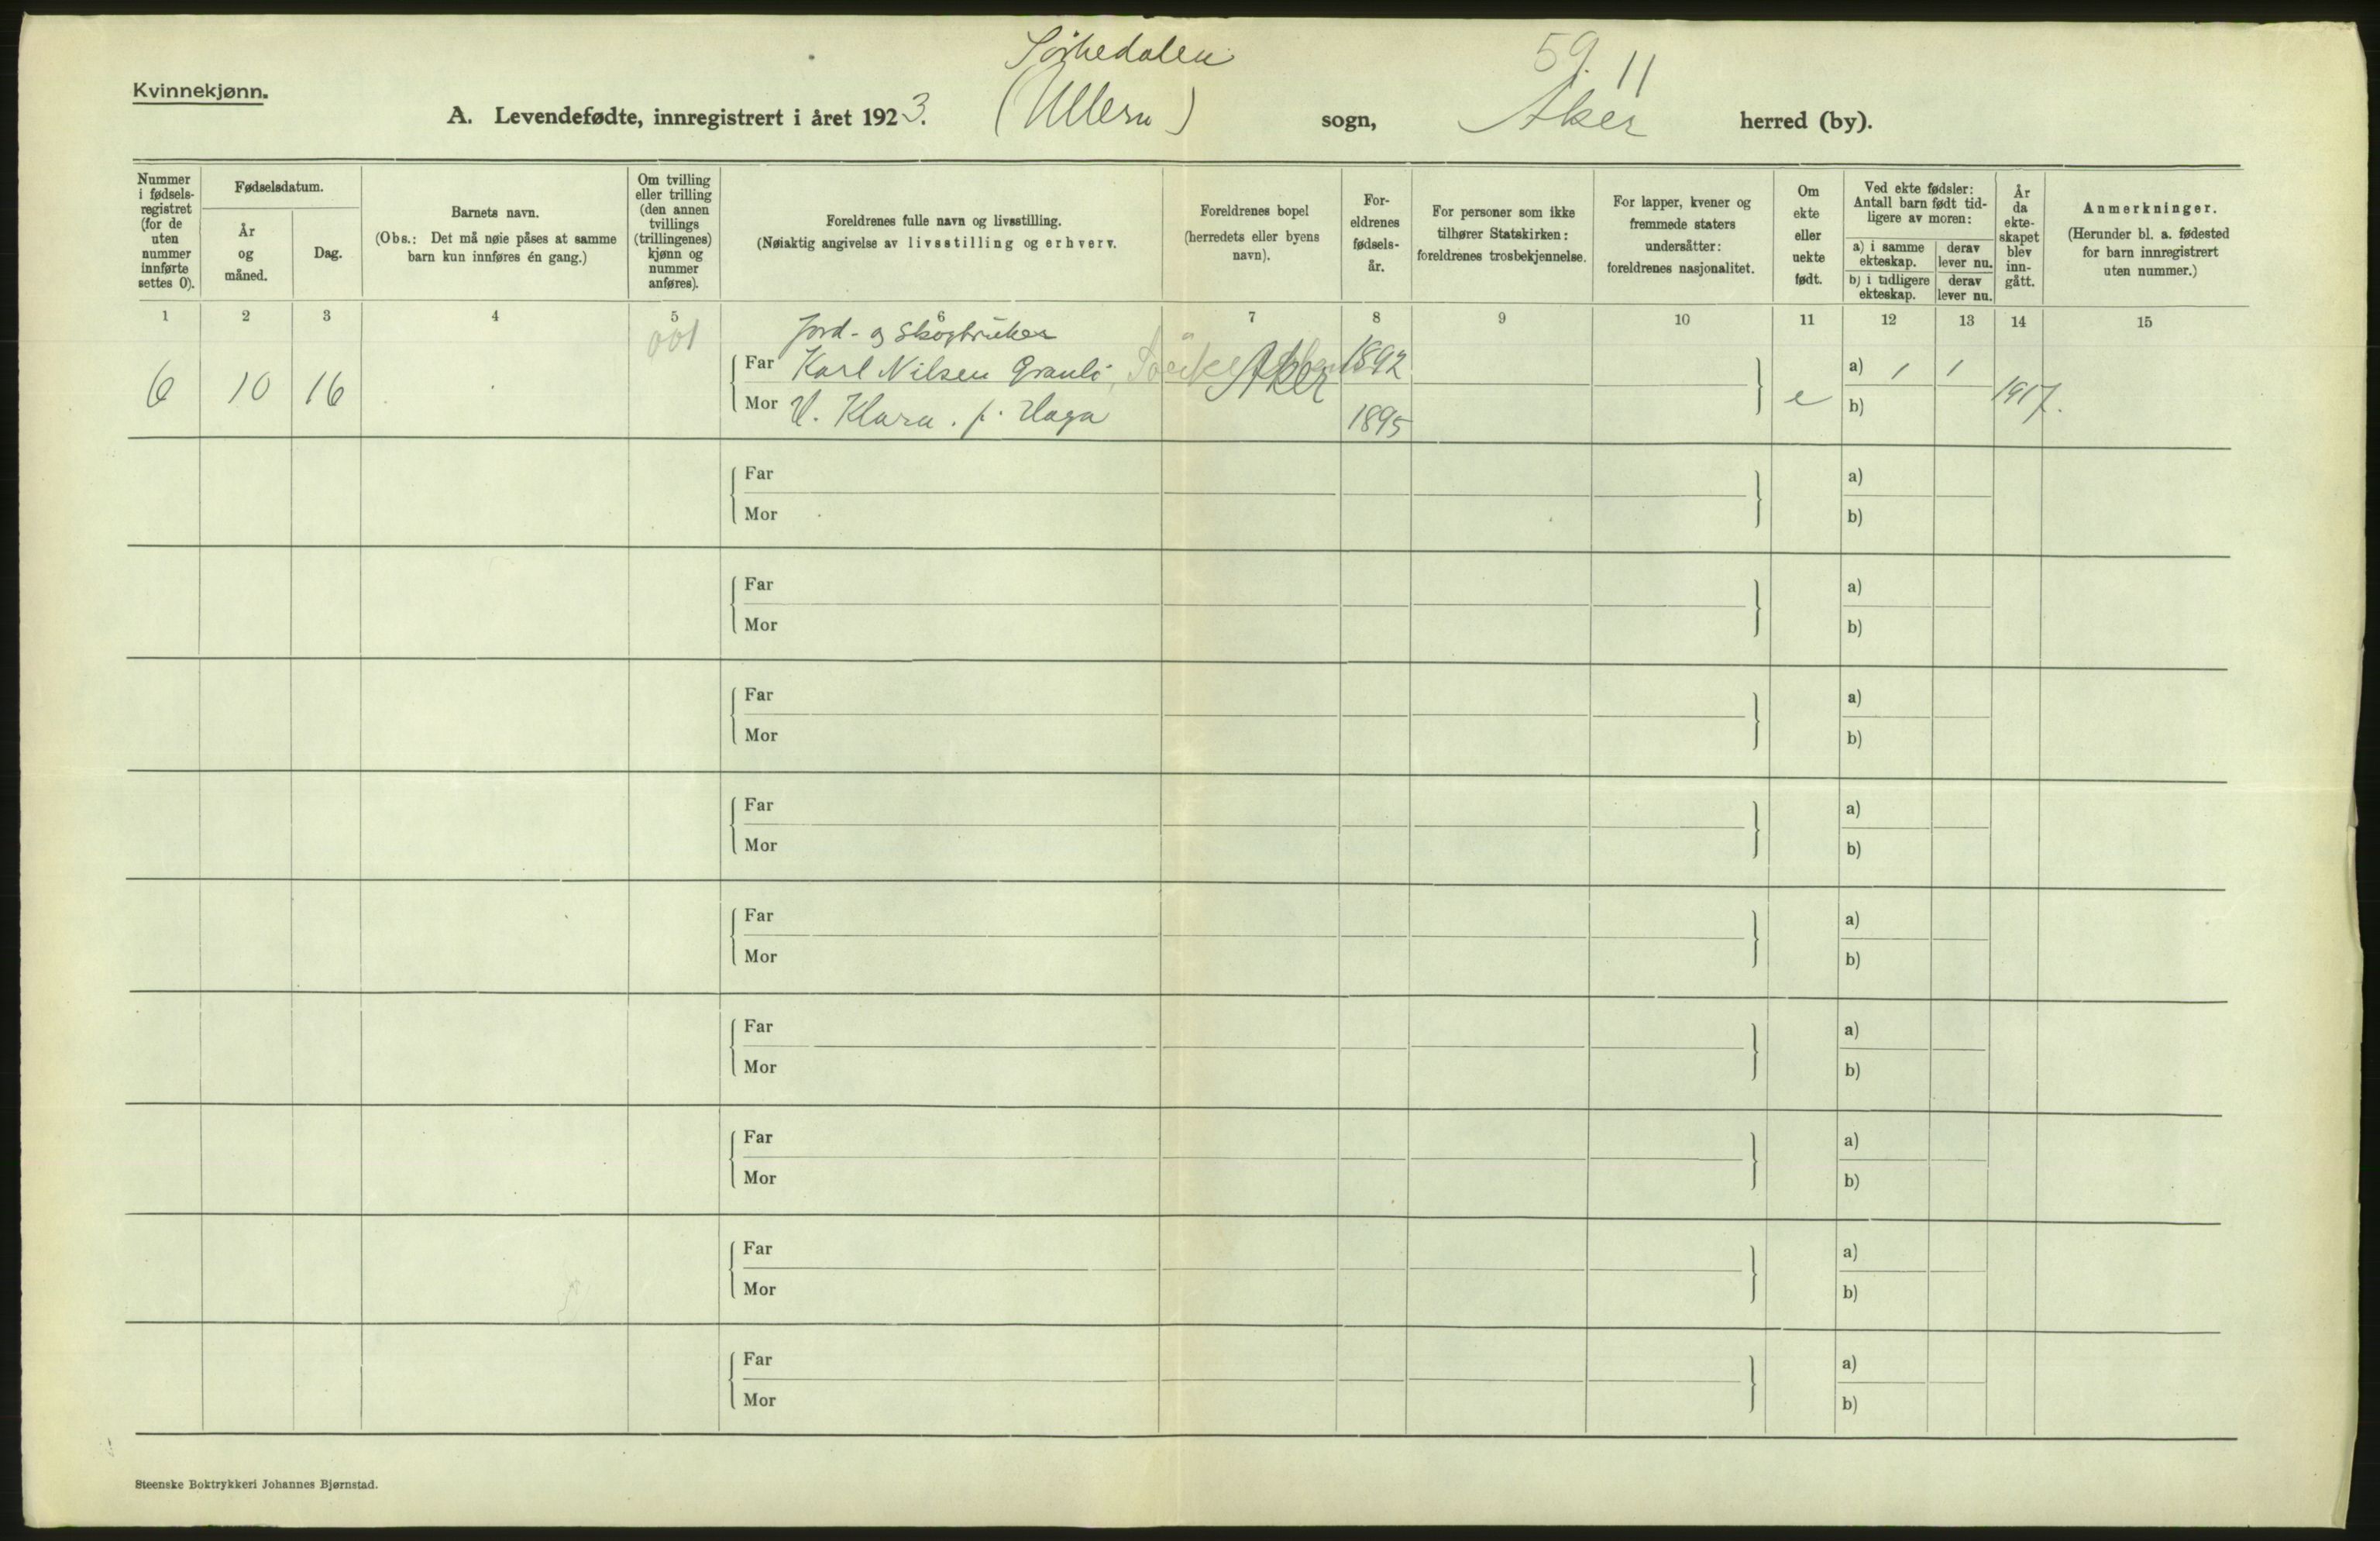 Kvinnekjønn.
Sørkedalen
59. 11
A. Levendefødte, innregistrert i året 1923. (Ullern) sogn, Aker herred (by).
Nummer i fødsels-registret (for de uten nummer innførte settes 0).
Fødselsdatum.
År og måned.
Dag.
Barnets navn.
(Obs.: Det må nøie påses at samme barn kun innføres én gang.)
Om tvilling eller trilling (den annen tvillings (trillingenes) kjønn og nummer anføres).
Foreldrenes fulle navn og livsstilling.
(Nøiaktig angivelse av livsstilling og erhverv.
Foreldrenes bopel (herredets eller byens navn).
For-eldrenes fødsels-år.
For personer som ikke tilhører Statskirken: foreldrenes trosbekjennelse.
For lapper, kvener og fremmede staters undersåtter: foreldrenes nasjonalitet.
Om ekte eller uekte født.
Ved ekte fødsler: Antall barn født tid-ligere av moren:
a) i samme ekteskap.
derav lever nu.
b) i tidligere ekteskap.
derav lever nu.
År da ekte-skapet blev inn-gått.
Anmerkninger.
(Herunder bl. a. fødested for barn innregistrert uten nummer.)
1 2 3 4 5 6 7 8 9 10 11 12 13 14 15
001
Jord- og skogbruker
6 10 16 Far Karl Nilsen Granli, Aker 1892 e a) 1 1 1917.
Mor H. Klara. f. Haga 1895 b)
Far a)
Mor b)
Far a)
Mor b)
Far a)
Mor b)
Far a)
Mor b)
Far a)
Mor b)
Far a)
Mor b)
Far a)
Mor b)
Far a)
Mor b)
Far a)
Mor b)
Steenske Boktrykkeri Johannes Bjørnstad.